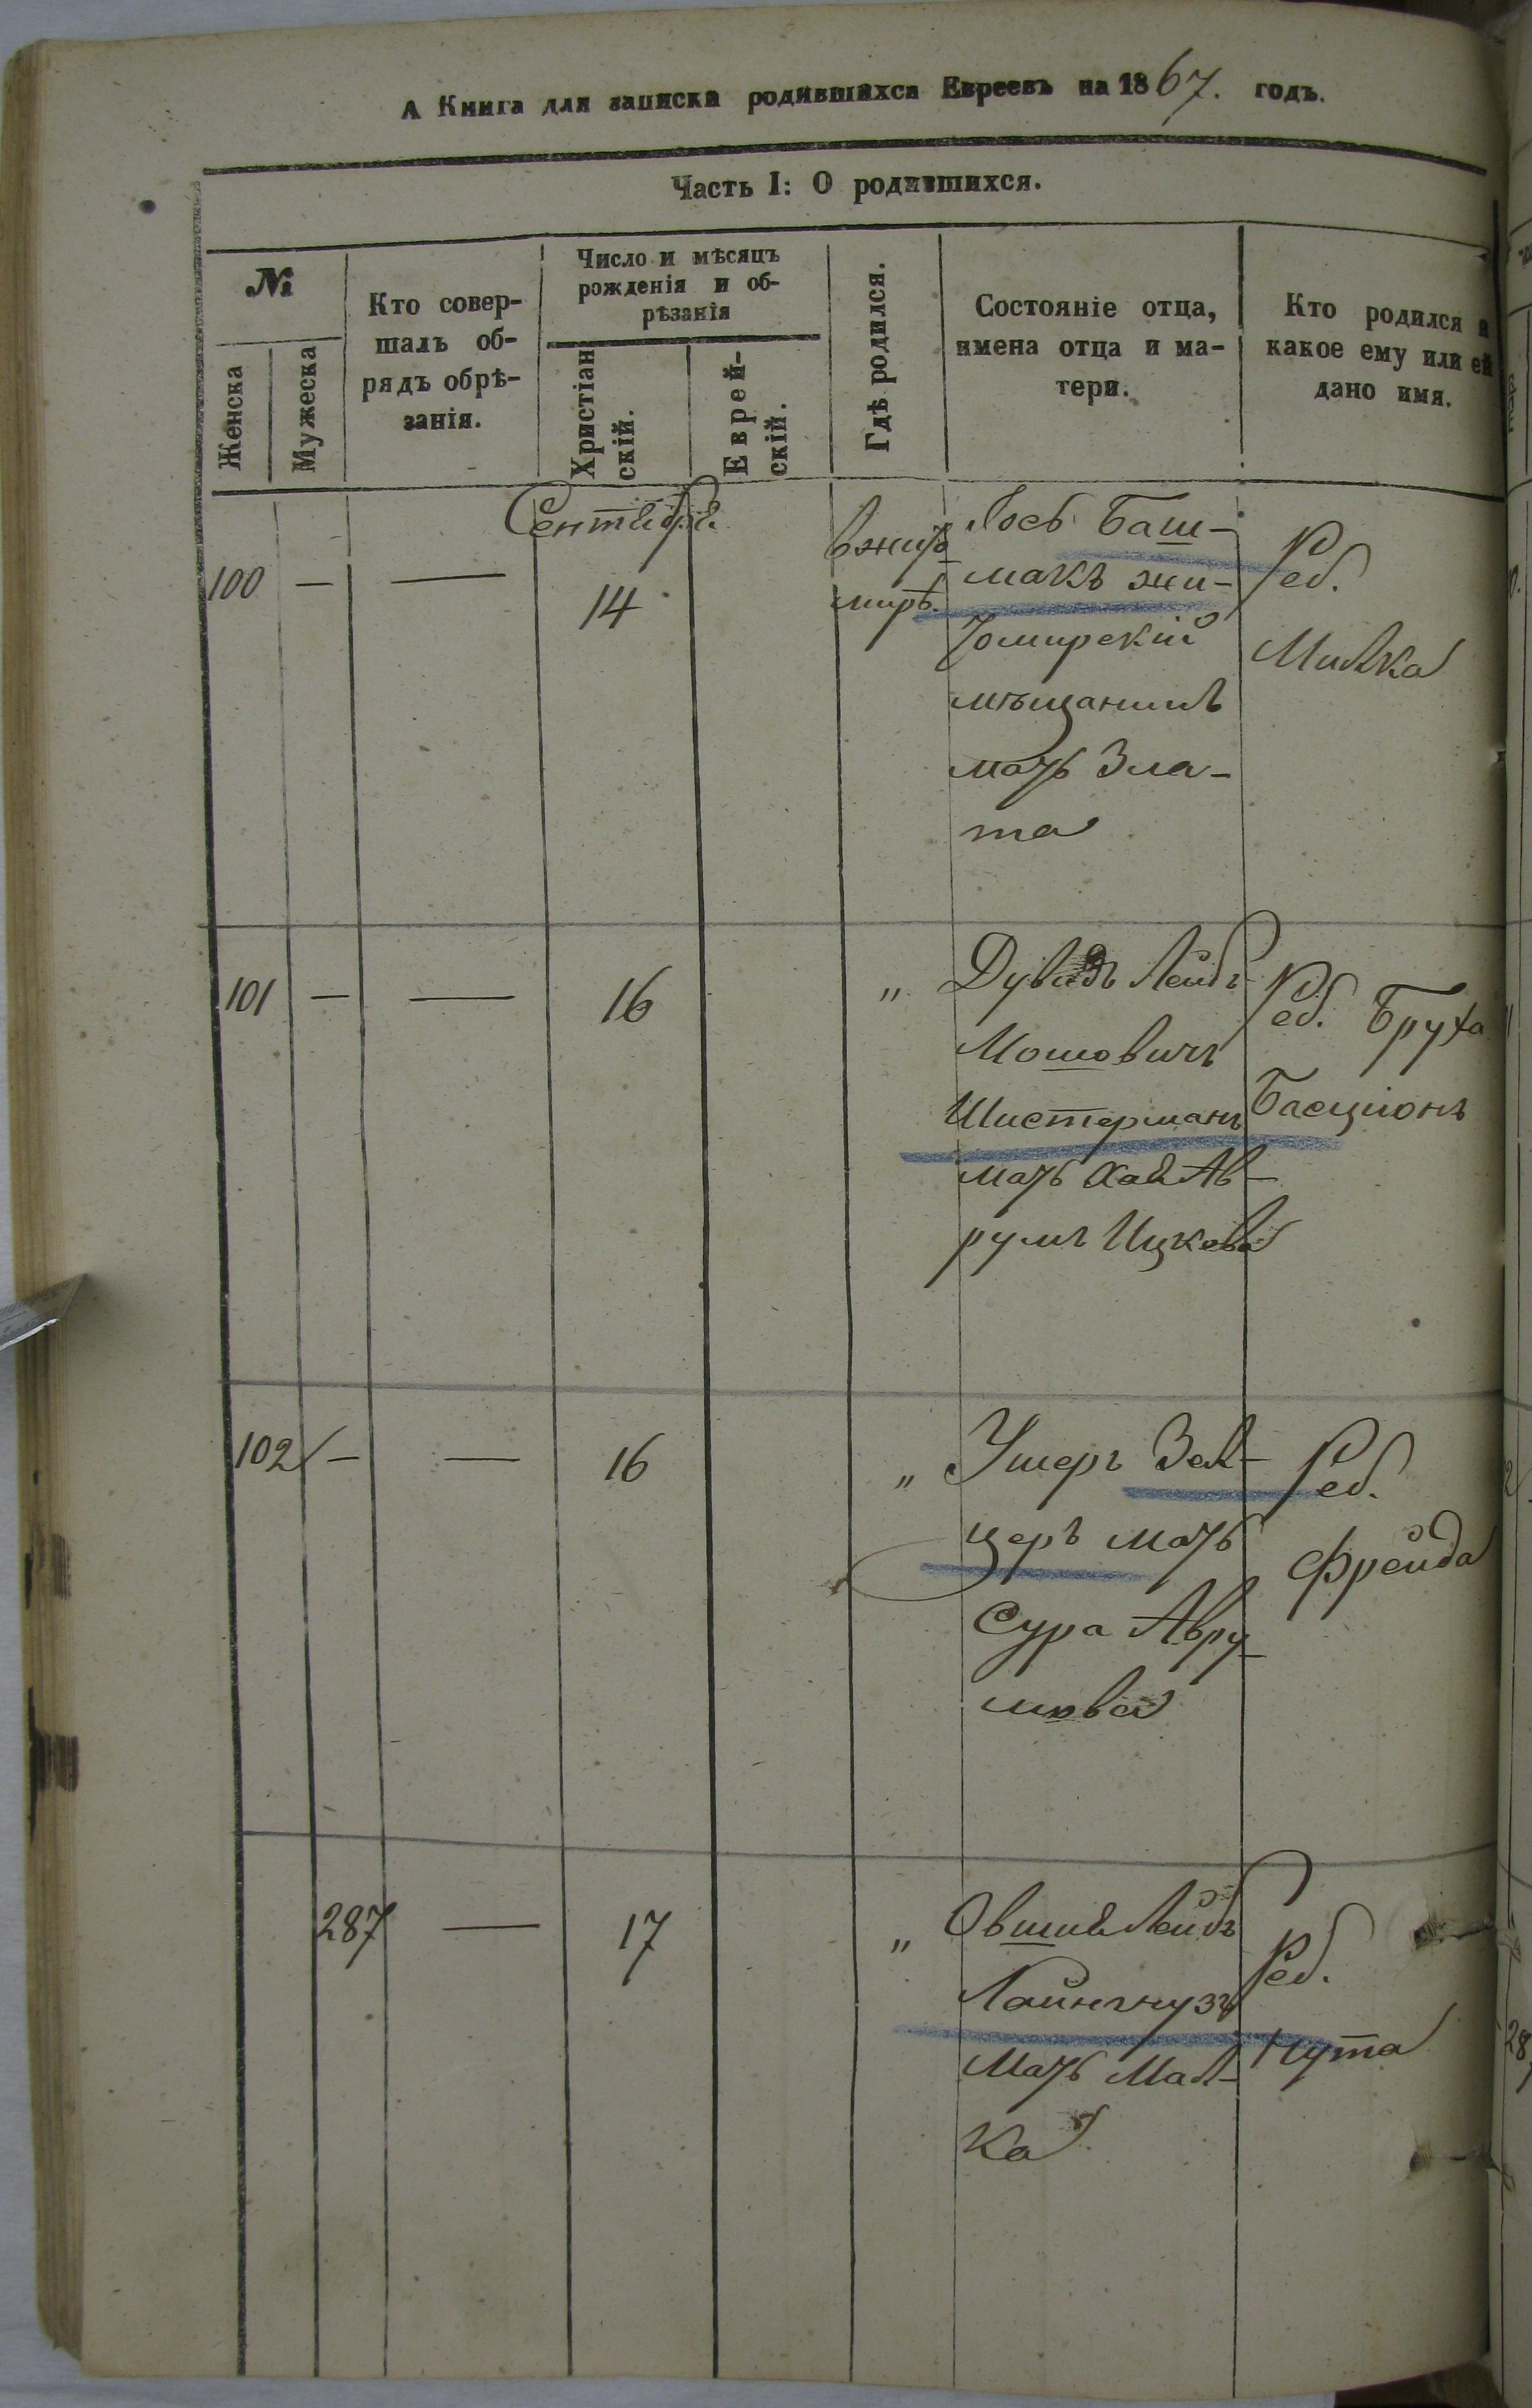 А Книга для записки родившихся Евреевъ на 1867. годъ.
Часть I: О родившихся.
№
Женска
Мужеска
Кто совер-
шалъ об-
рядъ обрѣ-
занія.
Число и мѣсяцъ
рожденія и об-
рѣзанія
Христіан
скій.
Еврей-
скій.
Гдѣ родился.
Состояніе отца,
имена отца и ма-
тери.
Кто родился и
какое ему или ей
дано имя.
Сентября
100 — — 14
вжито
мирѣ.
Іось Баш-
макъ жи-
томирскій
мѣщанинъ
мать Зла-
та
Реб.
Милка
101 — — 16 „
Дувадъ Лейбъ
Мошовичъ
Шистерманъ
мать Хая Ав-
румъ Ицкова
Реб. Бруха
Басционъ
102 — — 16 „
Ушеръ Зал-
церъ мать
Сура Авру-
мова
Реб.
Фрейда
287 — 17 „
Овшия Лейбъ
мать Мал-
ка
Реб.
Нута